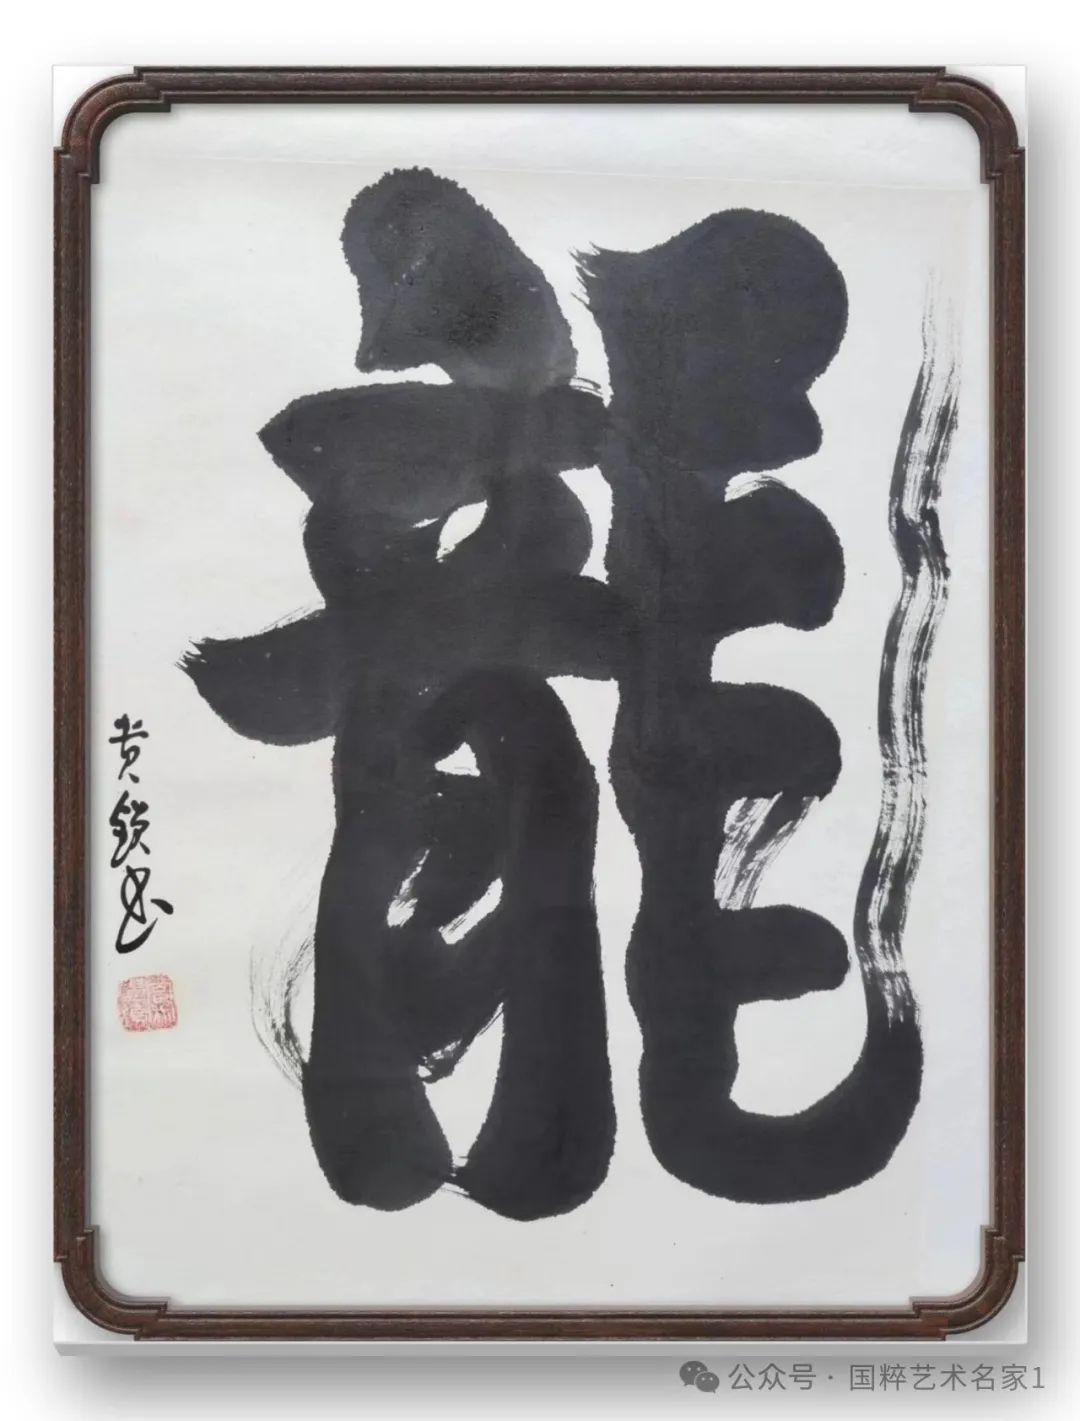 龍
黄锁书
公众号 · 国粹艺术名家1